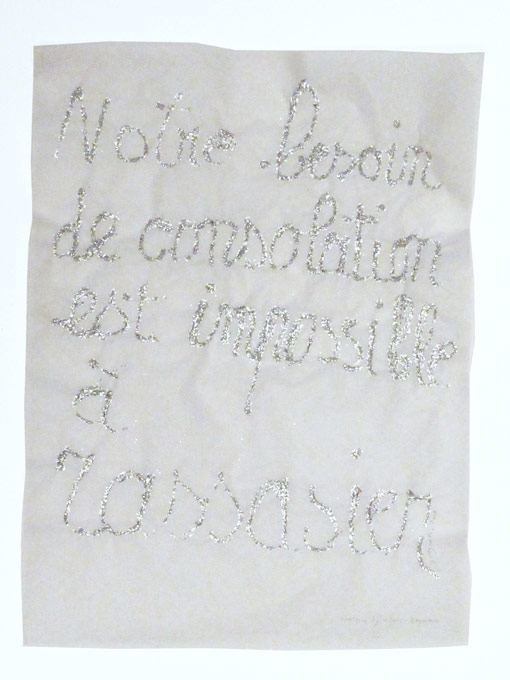 Notre besoin
de consolation
est impossible
à
rassasier